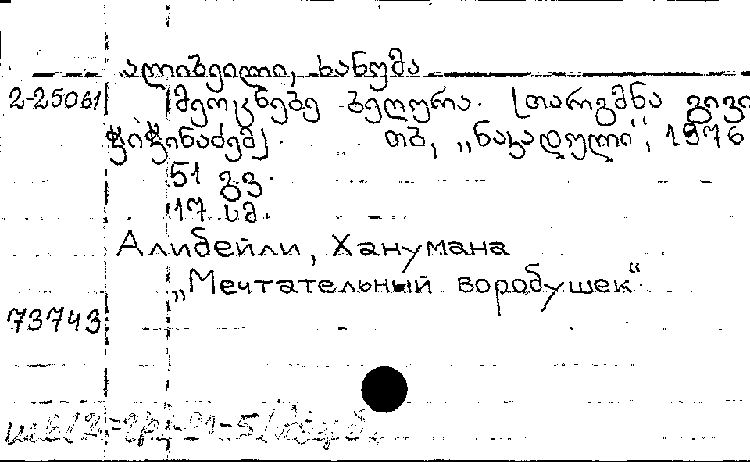 ალიბეილი, ხანუმა
2-25061 მეოცნებე ბეღურა. [თარგმნა გივი
ჭიჭინაძემ]. თბ, „ნაკადული“, 1976
51 გვ.
17 სმ.
Алибейли, Ханумана
„Мечтательный воробушек“
73743